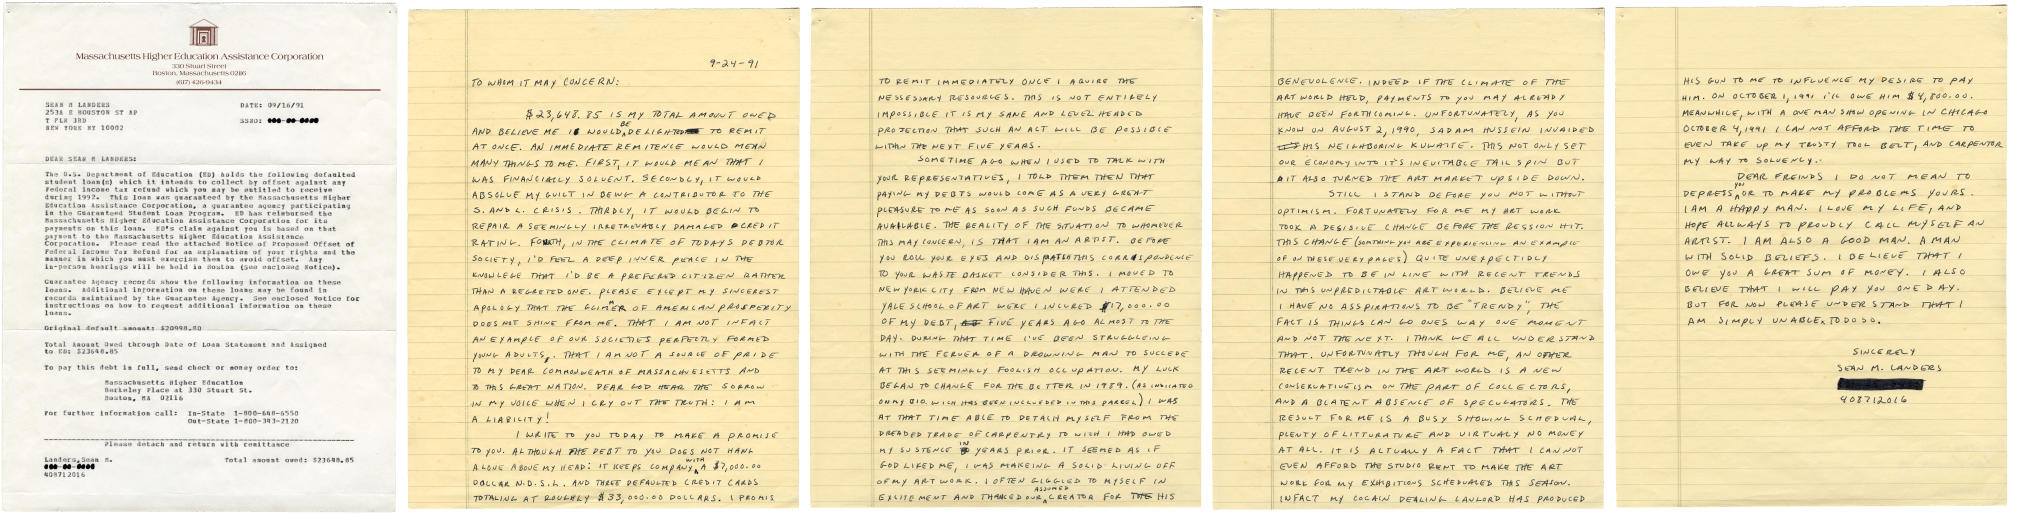 Massachusetts Higher Education Assistance Corporation
330 Stuart Street
Boston, Massachusetts 02116
(617) 426-9434
SEAN M LANDERS DATE: 09/16/91
253A E HOUSTON ST AP
T FLR 3RD SSNO:
NEW YORK NY 10002
DEAR SEAN M LANDERS:
The U.S. Department of Education (ED) holds the following defaulted
student loan(s) which it intends to collect by offset against any
Federal income tax refund which you may be entitled to receive
during 1992. This loan was guaranteed by the Massachusetts Higher
Education Assistance Corporation, a guarantee agency participating
in the Guaranteed Student Loan Program. ED has reimbursed the
Massachusetts Higher Education Assistance Corporation for its
payments on this loan. ED's claim against you is based on that
payment to the Massachusetts Higher Education Assistance
Corporation. Please read the attached Notice of Proposed Offset of
Federal Income Tax Refund for an explanation of your rights and the
manner in which you must exercise them to avoid offset. Any
in-person hearings will be held in Boston (See enclosed Notice).
Guarantee Agency records show the following information on these
loans. Additional information on these loans may be found in
records maintained by the Guarantee Agency. See enclosed Notice for
instructions on how to request additional information on these
loans.
Original default amount: $20998.80
Total Amount Owed through Date of Loan Statement and Assigned
to ED: $23648.85
To pay this debt in full, send check or money order to:
Massachusetts Higher Education
Berkeley Place at 330 Stuart St.
Boston, MA 02116
For further information call: In-State 1-800-648-6550
Out-State 1-800-343-2120
Please detach and return with remittance
Landers,Sean M. Total amount owed: $23648.85
408712016
9-24-91
TO WHOM IT MAY CONCERN:
$23,648.85 IS MY TOTAL AMOUNT OWED
AND BELIEVE ME I WOULD BE DELIGHTED TO REMIT
AT ONCE. AN IMMEDIATE REMITENCE WOULD MEAN
MANY THINGS TO ME. FIRST, IT WOULD MEAN THAT I
WAS FINANCIALLY SOLVENT. SECONDLY, IT WOULD
ABSOLVE MY GUILT IN BEING A CONTRIBUTOR TO THE
S. AND L. CRISIS. THARDLY, IT WOULD BEGIN TO
REPAIR A SEEMINGLY IRRETRIVABLY DAMAGED CREDIT
RATING. FORTH, IN THE CLIMATE OF TODAYS DEBTOR
SOCIETY, I'D FEEL A DEEP INNER PEACE IN THE
KNOWLEGE THAT I'D BE A PREFERED CITIZEN RATHER
THAN A REGRETED ONE. PLEASE EXCEPT MY SINCEREST
APOLOGY THAT THE GLIMER OF AMERICAN PROSPERITY
DOES NOT SHINE FROM ME. THAT I AM NOT INFACT
AN EXAMPLE OF OUR SOCIETIES PERFECTLY FORMED
YOUNG ADULTS, THAT I AM NOT A SOURCE OF PRIDE
TO MY DEAR COMMONWEATH OF MASSACHUSETTS AND
TO THIS GREAT NATION. DEAR GOD HEAR THE SORROW
IN MY VOICE WHEN I CRY OUT THE TRUTH: I AM
A LIABILITY!
I WRITE TO YOU TODAY TO MAKE A PROMISE
TO YOU. ALTHOUGH THE DEBT TO YOU DOES NOT HANG
ALONE ABOVE MY HEAD: IT KEEPS COMPANY WITH A $7,000.00
DOLLAR N.D.S.L. AND THREE DEFAULTED CREDIT CARDS
TOTALING AT ROUGHLY $33,000.00 DOLLARS. I PROMIS
TO REMIT IMMEDIATELY ONCE I AQUIRE THE
NESSESSARY RESOURCES. THIS IS NOT ENTIRELY
IMPOSSIBLE IT IS MY SANE AND LEVEL HEADED
PROJECTION THAT SUCH AN ACT WILL BE POSSIBLE
WITHIN THE NEXT FIVE YEARS.
SOMETIME AGO WHEN I USED TO TALK WITH
YOUR REPRESENTATIVES, I TOLD THEM THEN THAT
PAYING MY DEBTS WOULD COME AS A VERY GREAT
PLEASURE TO ME AS SOON AS SUCH FUNDS BECAME
AVAILABLE. THE REALITY OF THE SITUATION TO WHOMEVER
THIS MAY CONCERN, IS THAT I AM AN ARTIST. BEFORE
YOU ROLL YOUR EYES AND DISPATCH THIS CORRESPONDENCE
TO YOUR WASTE BASKET CONSIDER THIS. I MOVED TO
NEW YORK CITY FROM NEW HAVEN WERE I ATTENDED
YALE SCHOOL OF ART WERE I INCURED $17,000.00
OF MY DEBT, FIVE YEARS AGO ALMOST TO THE
DAY. DURING THAT TIME I'VE BEEN STRUGGLEING
WITH THE FERVER OF A DROWNING MAN TO SUCCEDE
AT THIS SEEMINGLY FOOLISH OCCUPATION. MY LUCK
BEGAN TO CHANGE FOR THE BETTER IN 1989. (AS INDICATED
ON MY BIO. WICH HAS BEEN INCLUEDED IN THIS PARCEL) I WAS
AT THAT TIME ABLE TO DETACH MYSELF FROM THE
DREADED TRADE OF CARPENTRY TO WICH I HAD OWED
MY SUSTENCE IN YEARS PRIOR. IT SEEMED AS IF
GOD LIKED ME, I WAS MAKEING A SOLID LIVING OFF
OF MY ART WORK. I OFTEN GIGGLED TO MYSELF IN
EXCITEMENT AND THANCED OUR ASSUMED CREATOR FOR HIS
BENEVOLENCE. INDEED IF THE CLIMATE OF THE
ART WORLD HELD, PAYMENTS TO YOU MAY ALREADY
HAVE BEEN FORTHCOMING. UNFORTUNATELY, AS YOU
KNOW ON AUGUST 2, 1990, SADAM HUSSEIN INVAIDED
HIS NEIGHBORING KUWAITE. THIS NOT ONLY SET
OUR ECONOMY INTO IT'S INEVITABLE TAIL SPIN BUT
IT ALSO TURNED THE ART MARKET UPSIDE DOWN.
STILL I STAND BEFORE YOU NOT WITHOUT
OPTIMISM. FORTUNATELY FOR ME MY ART WORK
TOOK A DESISIVE CHANGE BEFORE THE RESSION HIT.
THIS CHANGE (SOMTHING YOU ARE EXPERIENCING AN EXAMPLE
OF ON THESE VERY PAGES) QUITE UNEXPECTIDLY
HAPPENED TO BE IN LINE WITH RECENT TRENDS
IN THIS UNPREDICTABLE ART WORLD. BELIEVE ME
I HAVE NO ASSPIRATIONS TO BE "TRENDY", THE
FACT IS THINGS CAN GO ONES WAY ONE MOMENT
AND NOT THE NEXT. I THINK WE ALL UNDERSTAND
THAT. UNFORTUNATLY THOUGH FOR ME, AN OTHER
RECENT TREND IN THE ART WORLD IS A NEW
CONSERVATIVEISM ON THE PART OF COLLECTORS,
AND A BLATENT ABSENCE OF SPECULATORS. THE
RESULT FOR ME IS A BUSY SHOWING SCHEDUAL,
PLENTY OF LITTURATURE AND VIRTUALY NO MONEY
AT ALL. IT IS ALTUALLY A FACT THAT I CANNOT
EVEN AFFORD THE STUDIO RENT TO MAKE THE ART
WORK FOR MY EXHIBITIONS SCHEDUALED THIS SEASON.
INFACT MY COCAIN DEALING LANLORD HAS PRODUCED
HIS GUN TO ME TO INFLUENCE MY DESIRE TO PAY
HIM. ON OCTOBER 1, 1991 I'LL OWE HIM $4,800.00.
MEANWHILE, WITH A ONE MAN SHOW OPENING IN CHICAGO
OCTOBER 4, 1991 I CAN NOT AFFORD THE TIME TO
EVEN TAKE UP MY TRUSTY TOOL BELT, AND CARPENTOR
MY WAY TO SOLVENCY.
DEAR FREINDS I DO NOT MEAN TO
DEPRESS YOU, OR TO MAKE MY PROBLEMS YOURS.
I AM A HAPPY MAN. I LOVE MY LIFE, AND
HOPE ALLWAYS TO PROUDLY CALL MYSELF AN
ARTIST. I AM ALSO A GOOD MAN. A MAN
WITH SOLID BELIEFS. I BELIEVE THAT I
OWE YOU A GREAT SUM OF MONEY. I ALSO
BELIEVE THAT I WILL PAY YOU ONE DAY.
BUT FOR NOW PLEASE UNDERSTAND THAT I
AM SIMPLY UNABLE TO DO SO.
SINCERELY
SEAN M. LANDERS
408712016